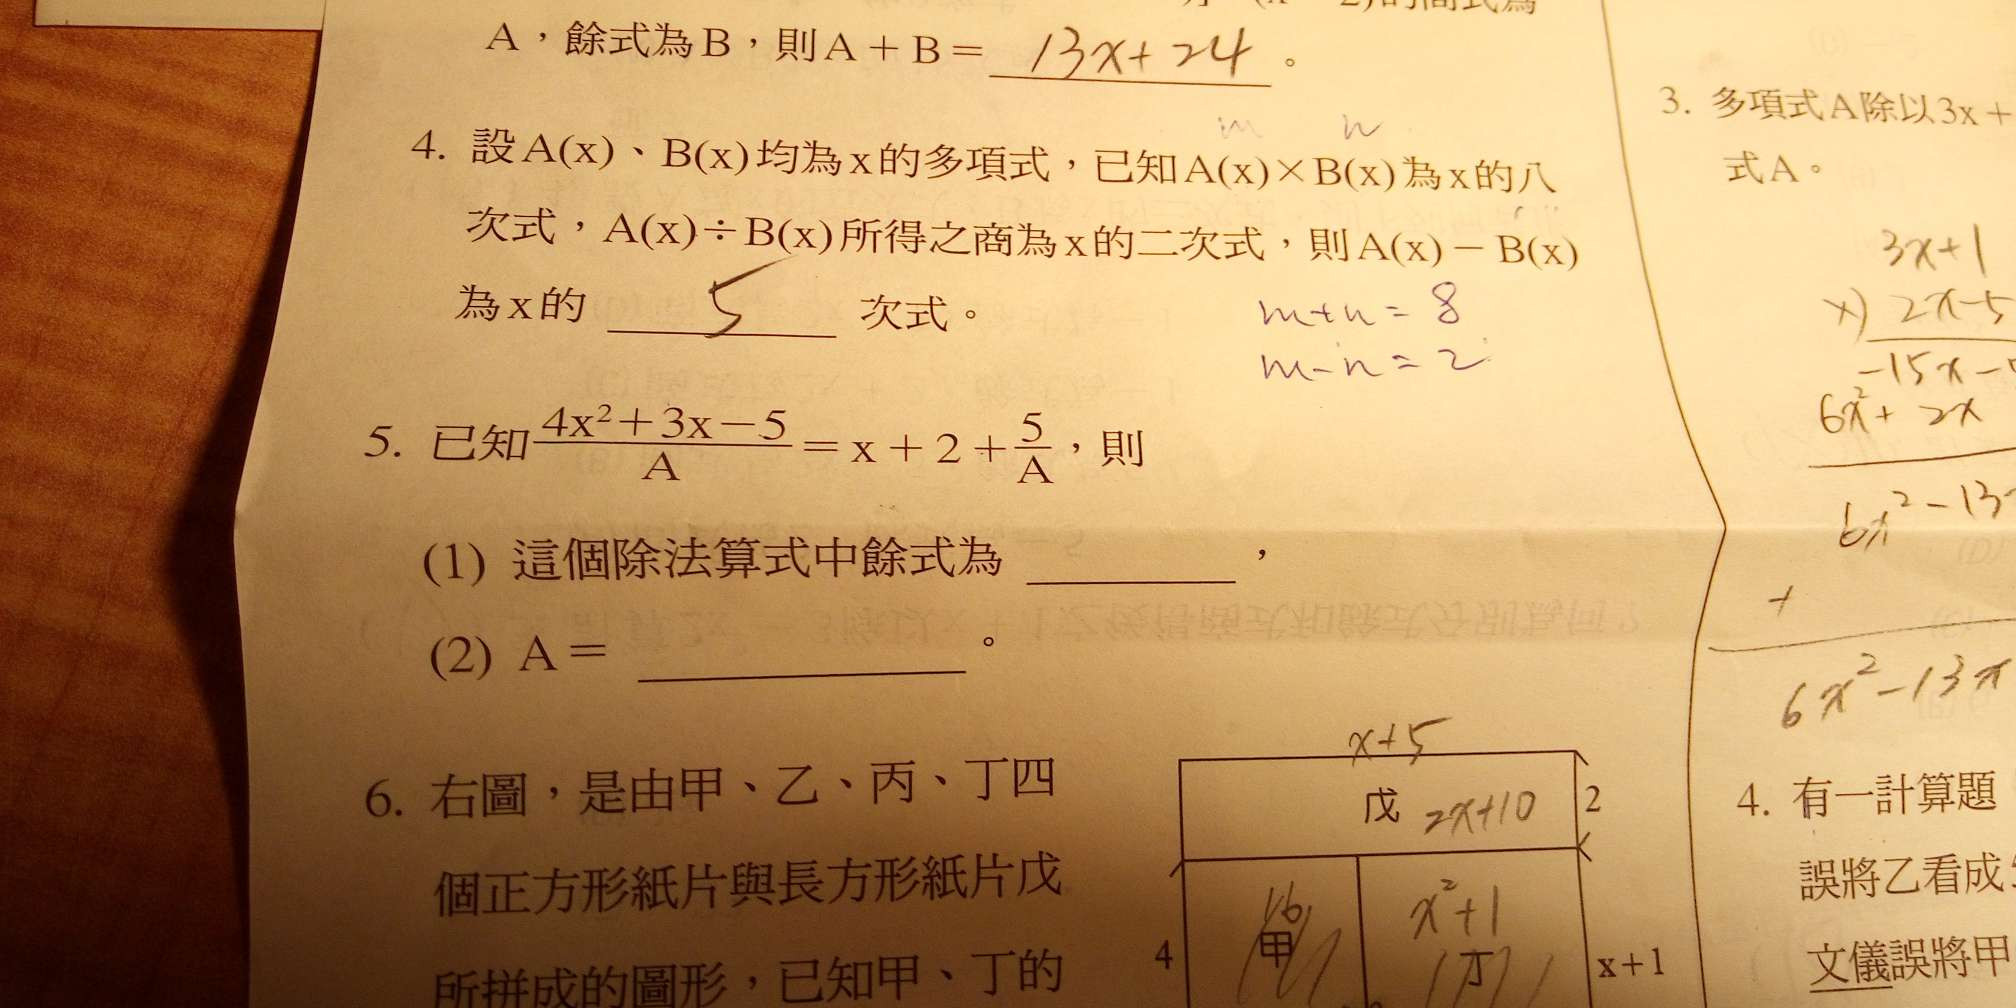 A，餘式為B，則A＋B＝13x+24。
4. 設A(x)、B(x)均為x的多項式，已知A(x)×B(x)為x的八
m n
次式，A(x)÷B(x)所得之商為x的二次式，則A(x)－B(x)
為x的 5 次式。
m+n=8
m-n=2
5. 已知 4x²＋3x－5/A＝x＋2＋5/A，則
(1) 這個除法算式中餘式為 ，
(2) A＝ 。
6. 右圖，是由甲、乙、丙、丁四
個正方形紙片與長方形紙片戊
所拼成的圖形，已知甲、丁的
x+5
戊 2x+10 2
16 x²+1
4 甲 丁 x+1
3. 多項式A除以3x＋
式A。
3x+1
×) 2x-5
-15x-
6x²+2x
6x²-13
+
6x²-13x
4. 有一計算題
誤將乙看成
文儀誤將甲